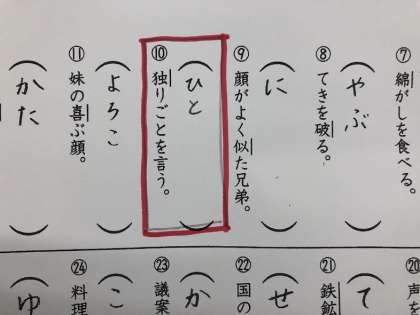 ⑦綿がしを食べる。
（やぶ）
⑧てきを破る。
（に）
⑨顔がよく似た兄弟。
（ひと）
⑩独りごとを言う。
（よろこ）
⑪妹の喜ぶ顔。
（かた）
⑳声を
（て
㉑鉄鉱
（せ
㉒国の
（か
㉓議案
（こ
㉔料理
（ゆ